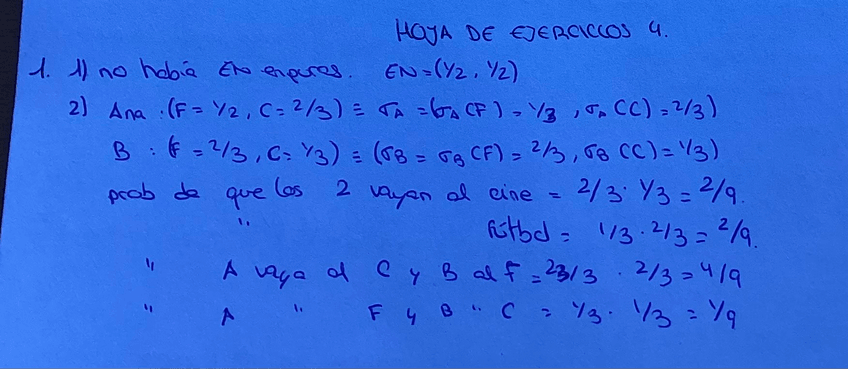 HOJA DE EJERCICIOS 4.
1. 1) no había EN en puras. EN = (1/2, 1/2)
2) Ana : (F = 1/2, C = 2/3) ≡ σA = (σA (F) = 1/3, σA (C) = 2/3)
B : (F = 2/3, C = 1/3) ≡ (σB = σB (F) = 2/3, σB (C) = 1/3)
prob de que los 2 vayan al cine = 2/3 · 1/3 = 2/9.
" fútbol = 1/3 · 2/3 = 2/9.
" A vaya al C y B al F = 2/3 · 2/3 = 4/9
" A " F y B " C = 1/3 · 1/3 = 1/9